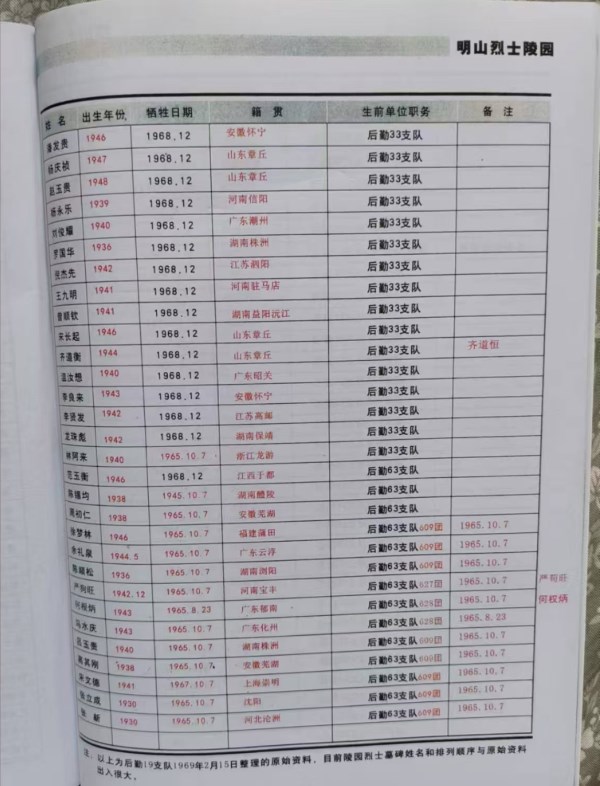 明山烈士陵园
姓名 出生年份 牺牲日期 籍贯 生前单位职务 备注
潘发贵 1946 1968.12 安徽怀宁 后勤33支队
杨庆祯 1947 1968.12 山东章丘 后勤33支队
赵玉贵 1948 1968.12 山东章丘 后勤33支队
杨永乐 1939 1968.12 河南信阳 后勤33支队
刘俊耀 1940 1968.12 广东潮州 后勤33支队
罗国华 1936 1968.12 湖南株洲 后勤33支队
倪杰先 1942 1968.12 江苏泗阳 后勤33支队
王九明 1941 1968.12 河南驻马店 后勤33支队
曾顺钦 1941 1968.12 湖南益阳沅江 后勤33支队
宋长起 1946 1968.12 山东章丘 后勤33支队
齐道衡 1944 1968.12 山东章丘 后勤33支队 齐道恒
温汝想 1940 1968.12 广东昭关 后勤33支队
李良来 1943 1968.12 安徽怀宁 后勤33支队
李贤发 1942 1968.12 江苏高邮 后勤33支队
龙珠彪 1942 1968.12 湖南保靖 后勤33支队
林阿来 1940 1965.10.7 浙江龙游 后勤63支队
范玉衡 1946 1968.12 江西于都 后勤63支队
陈德均 1938 1945.10.7 湖南醴陵 后勤63支队
周初仁 1938 1965.10.7 安徽芜湖 后勤63支队
徐梦林 1946 1965.10.7 福建莆田 后勤63支队609团 1965.10.7
余礼泉 1944.5 1965.10.7 广东云浮 后勤63支队609团 1965.10.7
陈顺松 1936 1965.10.7 湖南浏阳 后勤63支队609团 1965.10.7
严狗旺 1942.12 1965.10.7 河南宝丰 后勤63支队627团 1965.10.7 严狗旺
何权炳 1943 1965.8.23 广东郁南 后勤63支队628团 1965.10.7 何权炳
马水庆 1943 1965.10.7 广东化州 后勤63支队628团 1965.8.23
吕玉贵 1940 1965.10.7 湖南株洲 后勤63支队609团 1965.10.7
葛其刚 1938 1965.10.7 安徽芜湖 后勤63支队609团 1965.10.7
宋文德 1941 1967.10.7 上海崇明 后勤63支队609团 1965.10.7
张立成 1930 1965.10.7 沈阳 后勤63支队609团 1965.10.7
张新 1930 1965.10.7 河北沧洲 后勤63支队609团 1965.10.7
注：以上为后勤19支队1969年2月15日整理的原始资料，目前陵园烈士墓碑姓名和排列顺序与原始资料
出入很大。